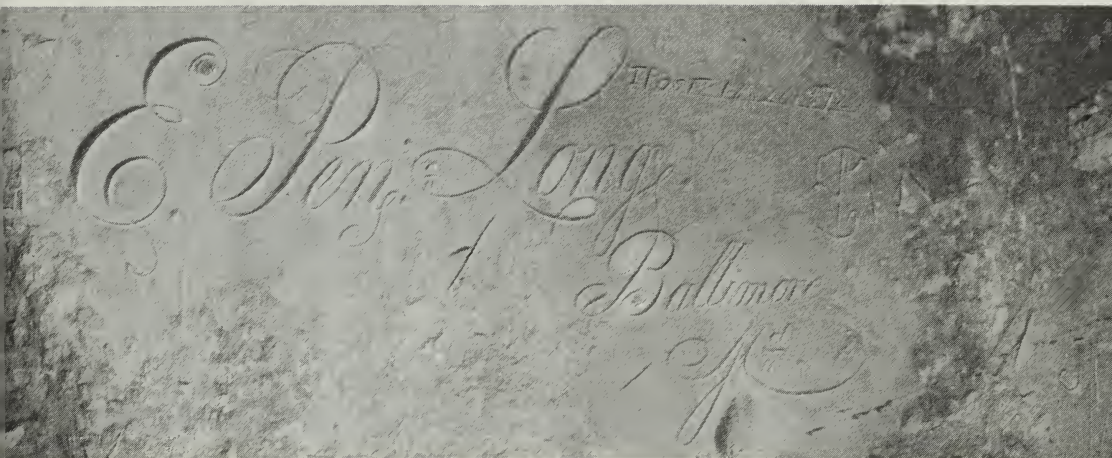 E. Pen. Long.
Baltimore
Md